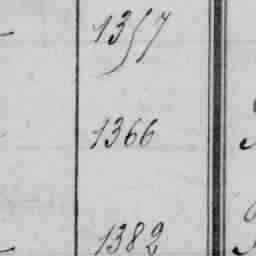 1357
1366
1382